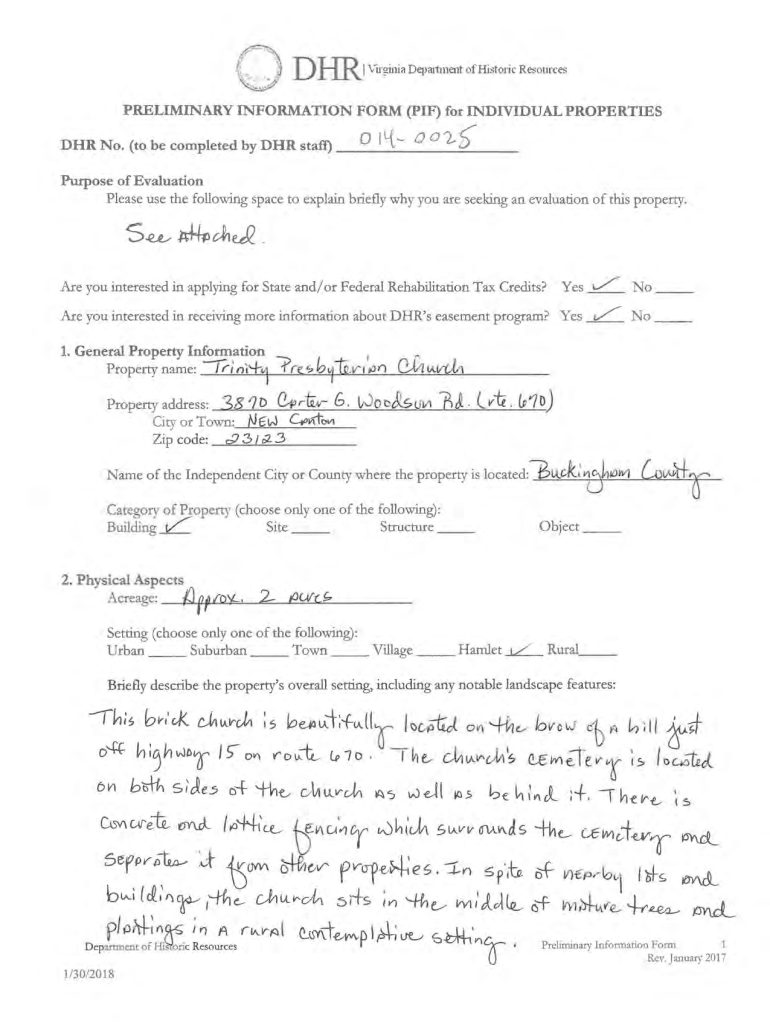 DHR | Virginia Department of Historic Resources
PRELIMINARY INFORMATION FORM (PIF) for INDIVIDUAL PROPERTIES
DHR No. (to be completed by DHR staff) 014-0025
Purpose of Evaluation
Please use the following space to explain briefly why you are seeking an evaluation of this property.
See Attached.
Are you interested in applying for State and/or Federal Rehabilitation Tax Credits? Yes ✓ No
Are you interested in receiving more information about DHR's easement program? Yes ✓ No
1. General Property Information
Property name: Trinity Presbyterian Church
Property address: 3890 Carter G. Woodson Rd. (rte. 670)
City or Town: NEW Canton
Zip code: 23123
Name of the Independent City or County where the property is located: Buckingham County
Category of Property (choose only one of the following):
Building ✓ Site Structure Object
2. Physical Aspects
Acreage: Approx. 2 acres
Setting (choose only one of the following):
Urban Suburban Town Village Hamlet ✓ Rural
Briefly describe the property's overall setting, including any notable landscape features:
This brick church is beautifully located on the brow of a hill just
off highway 15 on route 670. The church's cemetery is located
on both sides of the church as well as behind it. There is
concrete and lattice fencing which surrounds the cemetery and
separates it from other properties. In spite of nearby lots and
buildings, the church sits in the middle of mature trees and
plantings in a rural contemplative setting.
Department of Historic Resources Preliminary Information Form 1
Rev. January 2017
1/30/2018